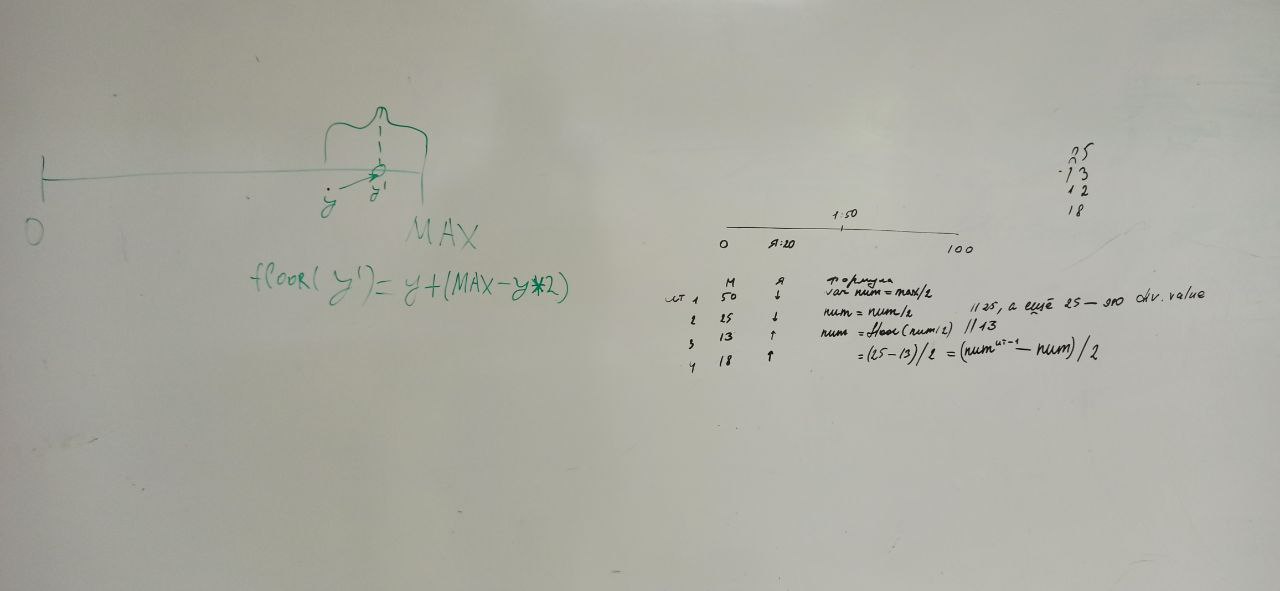 y
y'
0
MAX
floor( y') = y+(MAX-y*2)
25
13
12
18
1:50
0
Я:20
100
М Я формула
ит 1 50 ↓ var num = max/2
2 25 ↓ num = num/2 // 25, а ещё 25 — это div. value
3 13 ↑ num = floor(num/2) // 13
4 18 ↑ = (25-13)/2 = (num ит-1 - num)/2